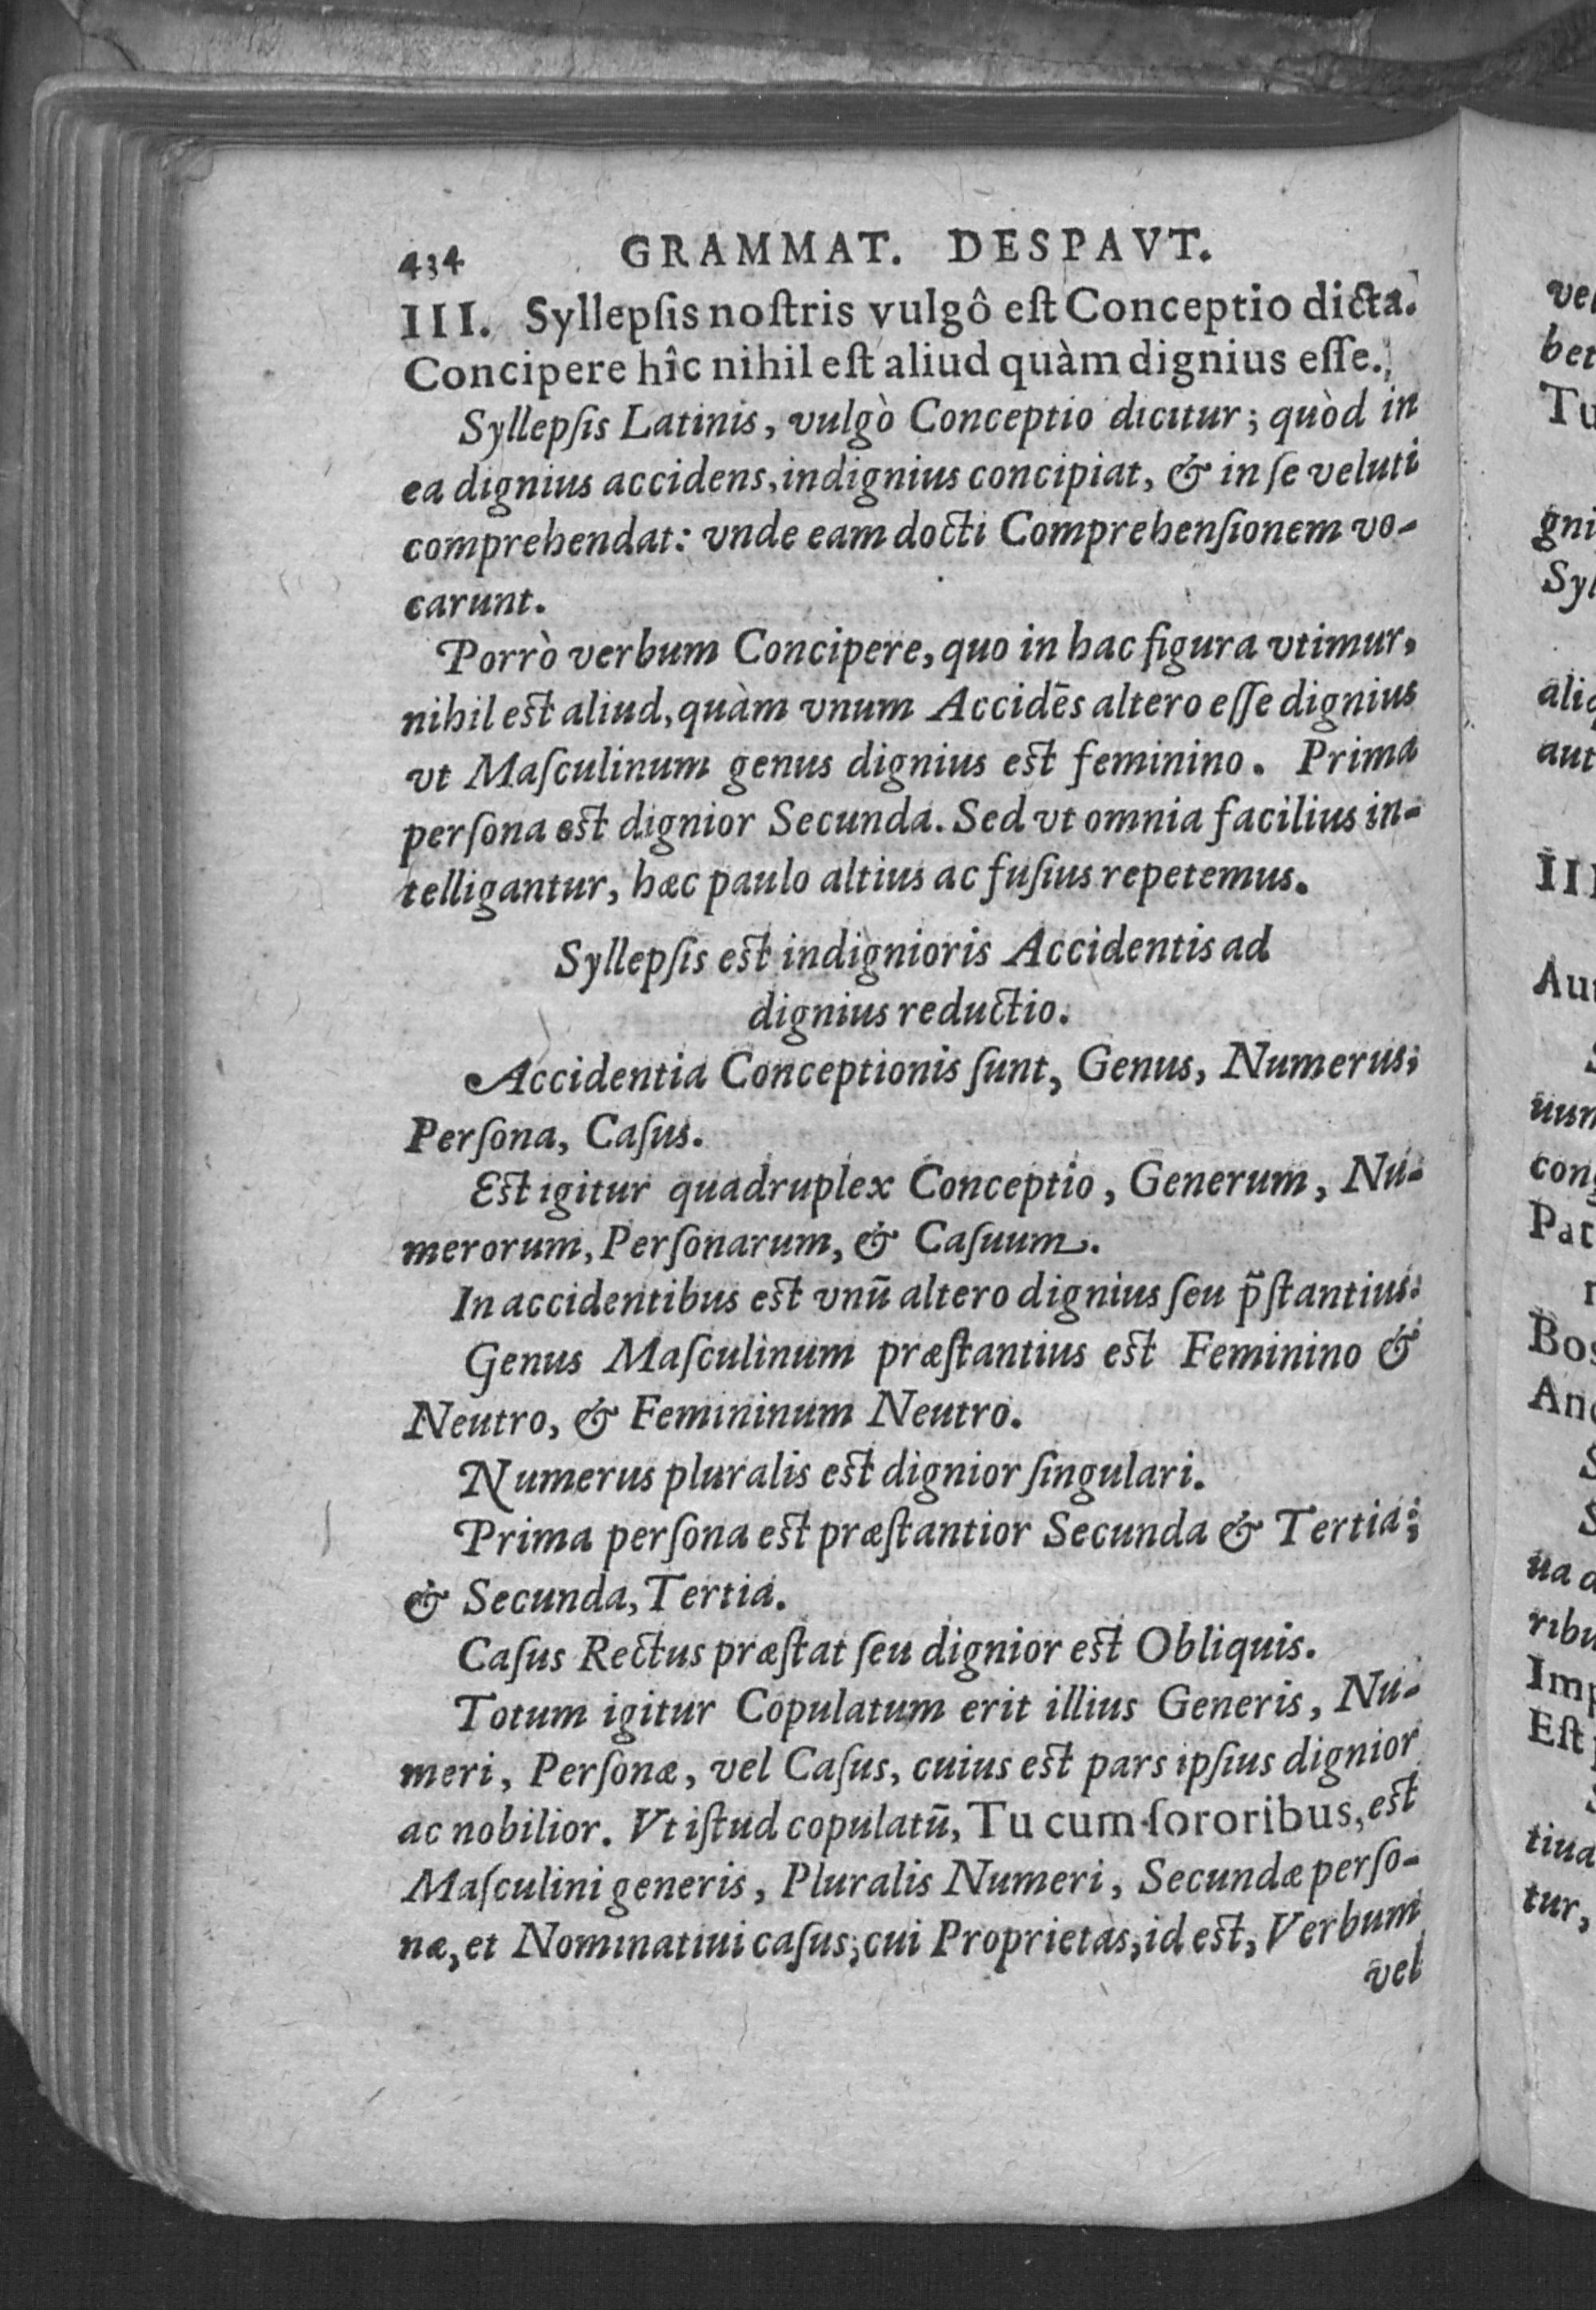 434 GRAMMAT. DESPAVT.
III. Syllepſis noſtris vulgô eſt Conceptio dicta.
Concipere hîc nihil eſt aliud quàm dignius eſſe.
Syllepſis Latinis, vulgò Conceptio dicitur; quòd in
ea dignius accidens, indignius concipiat, & in ſe veluti
comprehendat: vnde eam docti Comprehenſionem vo-
carunt.
Porrò verbum Concipere, quo in hac figura vtimur,
nihil eſt aliud, quàm vnum Accidēs altero eſſe dignius
vt Maſculinum genus dignius eſt feminino. Prima
perſona eſt dignior Secunda. Sed vt omnia facilius in-
telligantur, hæc paulo altius ac fuſius repetemus.
Syllepſis eſt indignioris Accidentis ad
dignius reductio.
Accidentia Conceptionis ſunt, Genus, Numerus,
Perſona, Caſus.
Eſt igitur quadruplex Conceptio, Generum, Nu-
merorum, Perſonarum, & Caſuum.
In accidentibus eſt vnū altero dignius ſeu p̄ſtantius.
Genus Maſculinum præſtantius eſt Feminino &
Neutro, & Femininum Neutro.
Numerus pluralis eſt dignior ſingulari.
Prima perſona eſt præſtantior Secunda & Tertia;
& Secunda, Tertia.
Caſus Rectus præſtat ſeu dignior eſt Obliquis.
Totum igitur Copulatum erit illius Generis, Nu-
meri, Perſonæ, vel Caſus, cuius eſt pars ipſius dignior
ac nobilior. Vt iſtud copulatū, Tu cum ſororibus, eſt
Maſculini generis, Pluralis Numeri, Secundæ perſo-
næ, et Nominatiui caſus; cui Proprietas, id eſt, Verbum
vel